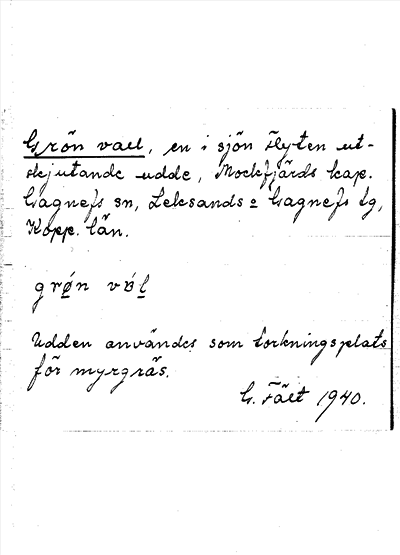 Grön vall, en i sjön Flyten ut-
skjutande udde, Mockfjärds kap.
Gagnefs sn, Leksands o Gagnefs tg,
Kopp. län.
grøn vøl
Udden användes som torkningsplats
för myrgräs.
G. Fält 1940.